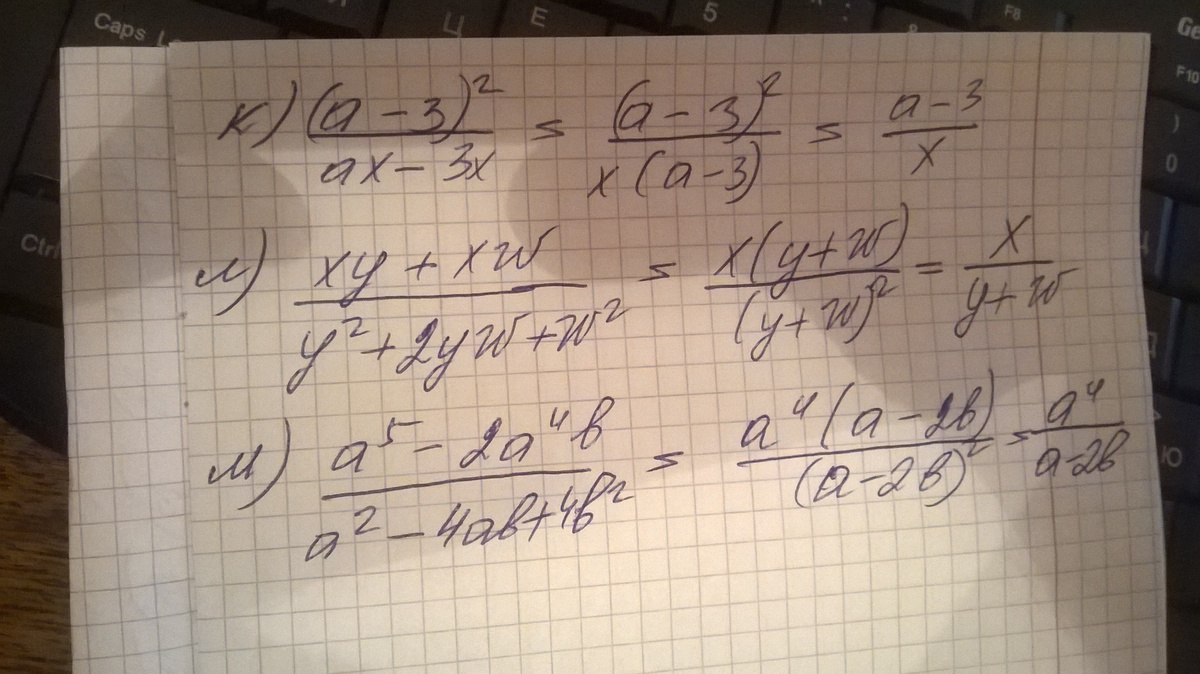 Caps Lo Ц Е 5 : & F8 Ge
F10
) 0
Ctrl
Ю
к) (a-3)²/(ax-3x) = (a-3)²/(x(a-3)) = (a-3)/x
л) (xy+xw)/(y²+2yw+w²) = x(y+w)/(y+w)² = x/(y+w)
м) (a⁵-2a⁴b)/(a²-4ab+4b²) = a⁴(a-2b)/(a-2b)² = a⁴/(a-2b)